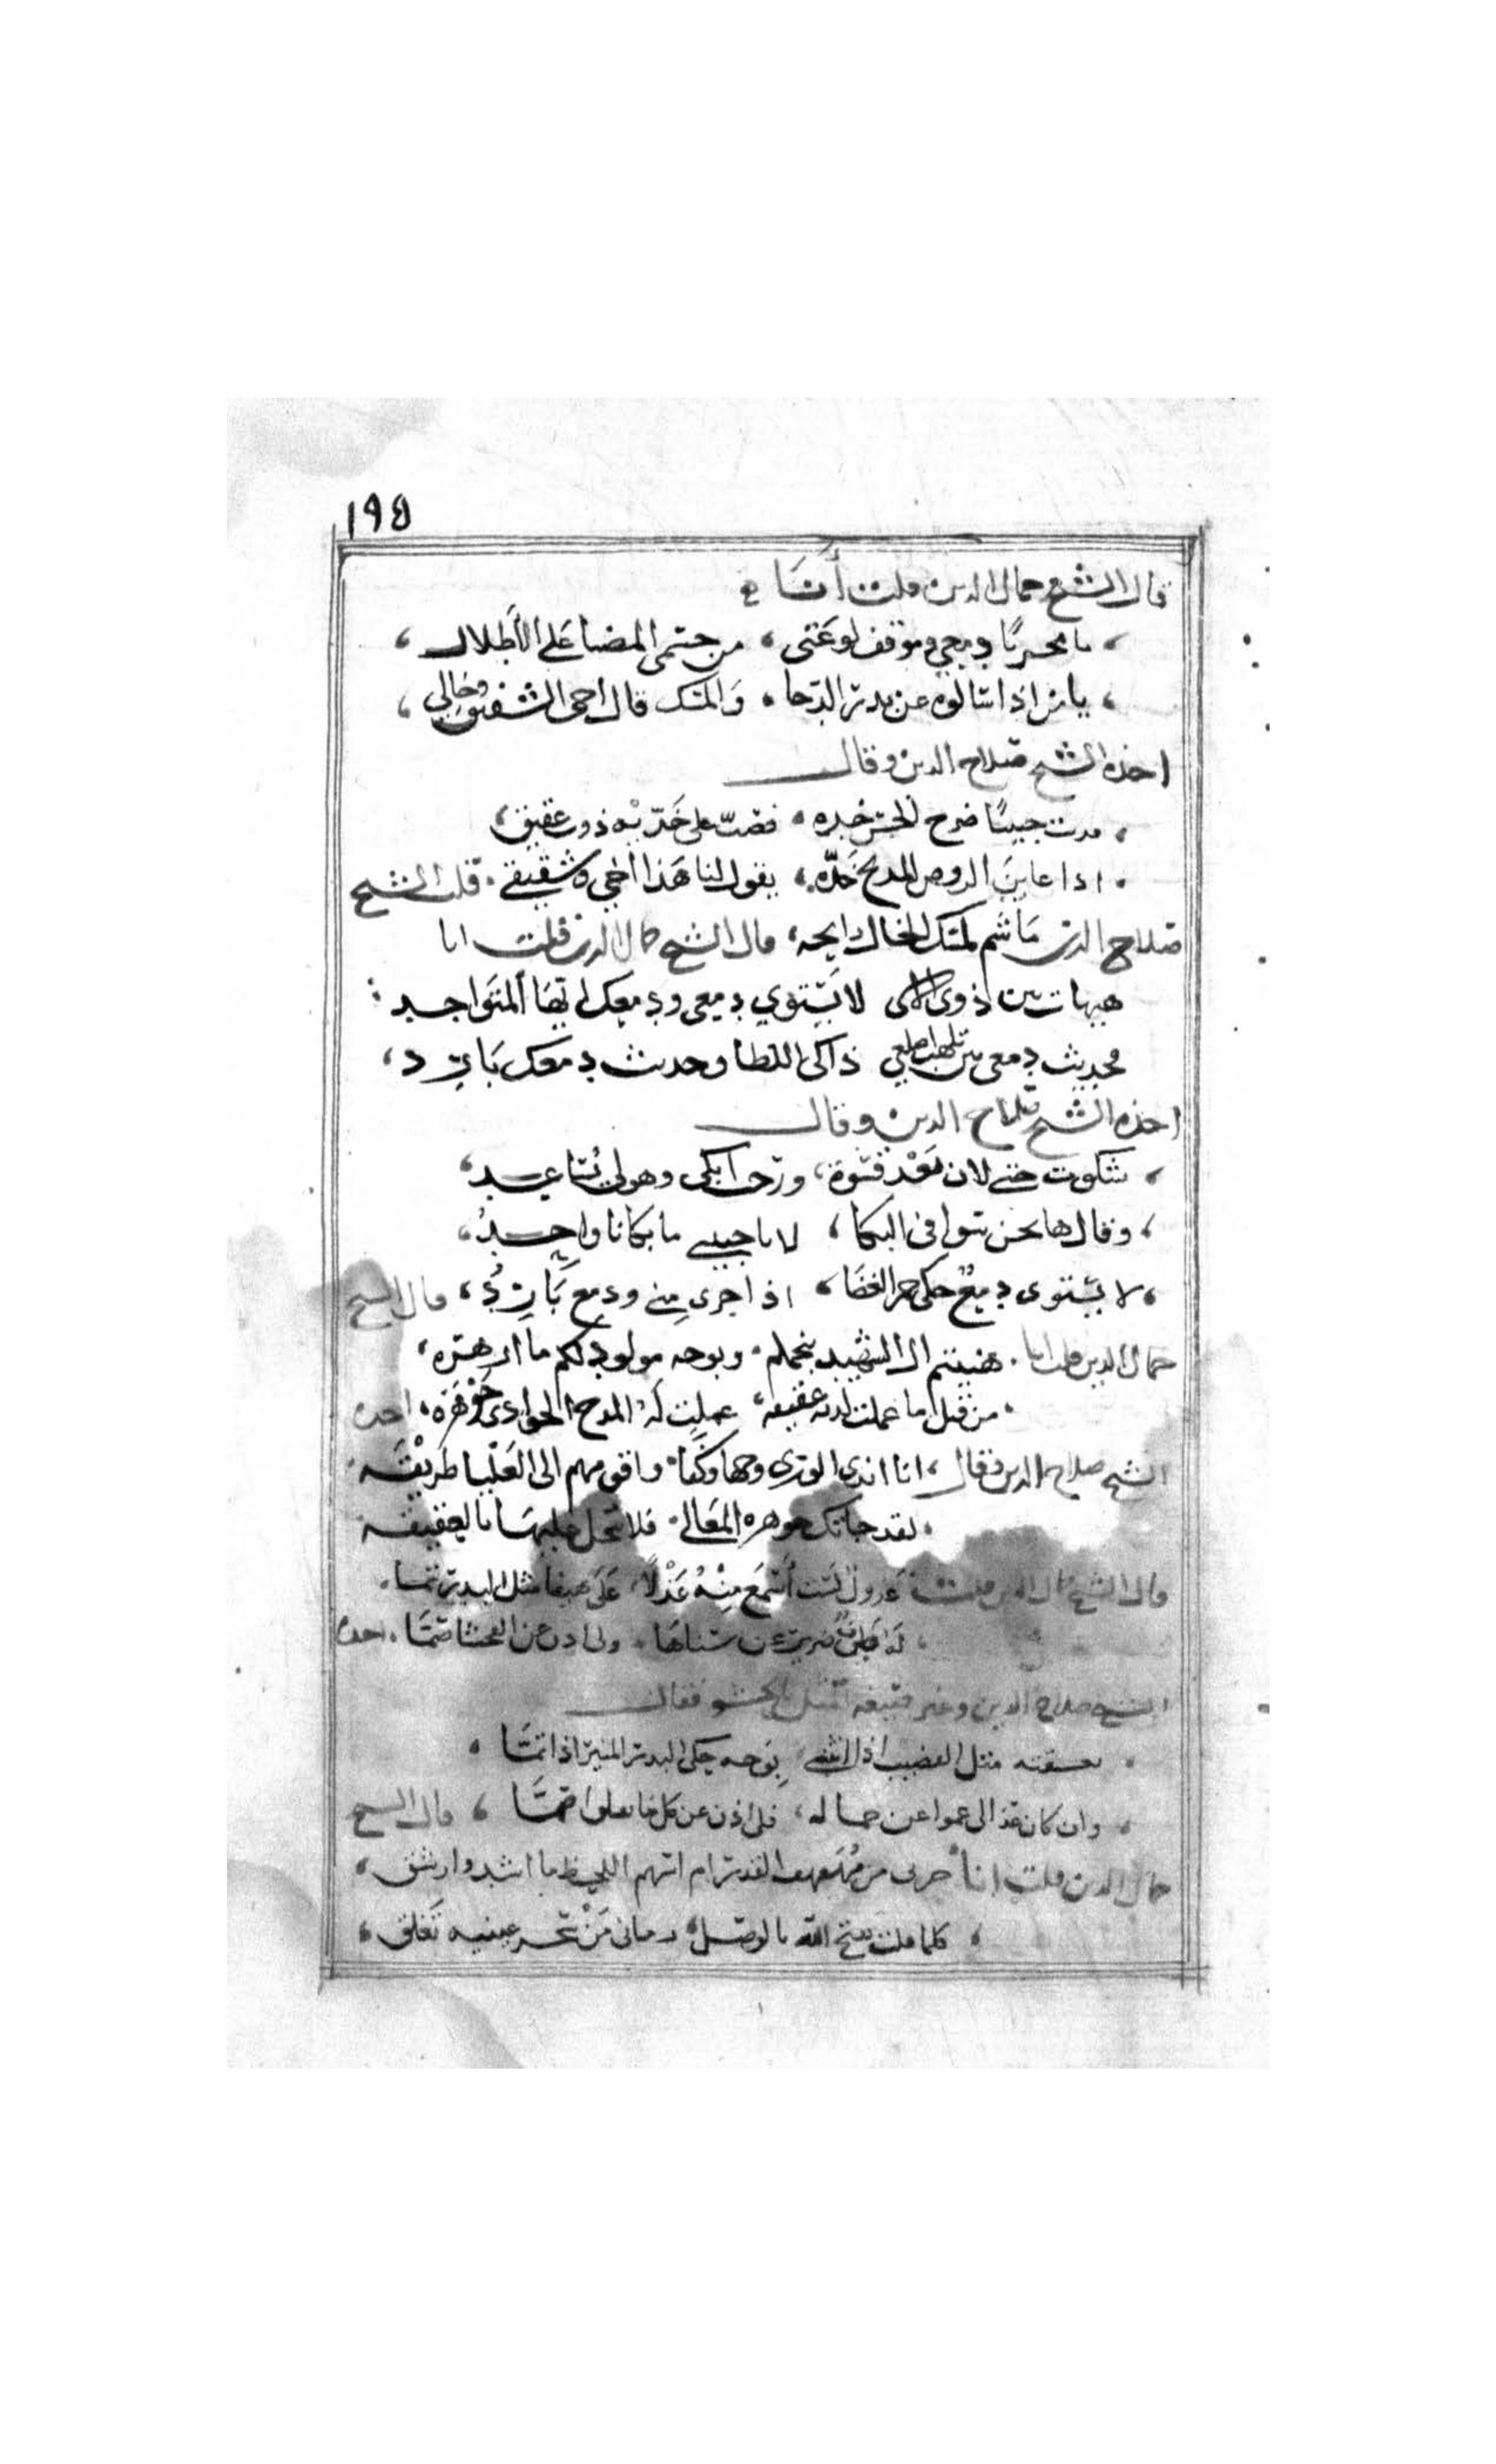 ١٩٥
قال الشيخ جمال الدين قلت أنا
يا مجريا دمعي وموقف لوعتي من جسمي المضنا على الأطلال
يا من اذا سالوه عن بدر الدجا والمسك قال اخي الشقيق وخالي
اخذه الشيخ صلاح الدين وقال
حبيبا ضرج الحسن خده على خديه ذوب عقيق
اذا عاين الروض المدبج خده يقول لنا هذا اخي وشقيقي قلت الشيخ
صلاح الدين ما شم لمسك الخال رايحه قال الشيخ جمال الدين قلت انا
هيهات بين ذوي لا يستوي دمعي ودمعك ايها المتواجد
فحديث دمعي من تلهب اضلعي ذاكي اللظا وحديث دمعك بارد
اخذه الشيخ صلاح الدين وقال
شكوت حتى لان بعد قسوة ورحت ابكي وهو لي يساعد
وقال ها نحن سوا في البكا لا يا حبيبي ما بكانا واحد
لا يستوي دمع حكى جمر الغضا اذا جرى مني ودمع بارد قال الشيخ
جمال الدين قلت انا هنيتم ال الشهيد بنجلكم وبوجه مولود لكم ما ازهره
من قبل ما عملت لديه عقيقه عملت له المدح الجوادي جوهره اخذه
الشيخ صلاح الدين فقال انا اندى الورى وجها وكفا وافقهم الى العليا طريقه
لقد جاتك جوهره المعالي فلا تبخل عليها بالعقيقه
قال الشيخ جمال الدين قلت عذول لست أسمع منه عذلا على هيفا مثل البدر تما
له عن سناها ولي اذن عن الفحشا صما اخذه
الشيخ صلاح الدين وغير فقال
تعشقته مثل القضيب اذا انثنى بوجه حكى البدر المنير اذا تما
وان كان عذالي عموا عن جماله فلي اذن عن كل ما نقلوا صما قال الشيخ
جمال الدين قلت انا حربي من مهفهف القد رام اسهم اللحظ ما اشد وارشق
كلما قلت يفتح الله بالوصل رماني من سحر عينيه تغلق